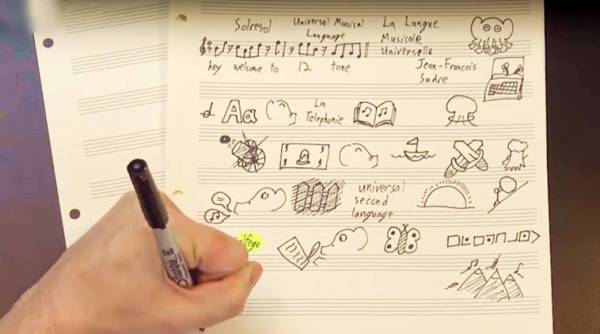 Solresol
Universal Musical
Language
La Langue
Musicale
Universelle
hey welcome to 12 tone
Jean-Francois
Sudre
Aa
La
Telephonie
universal
second
language